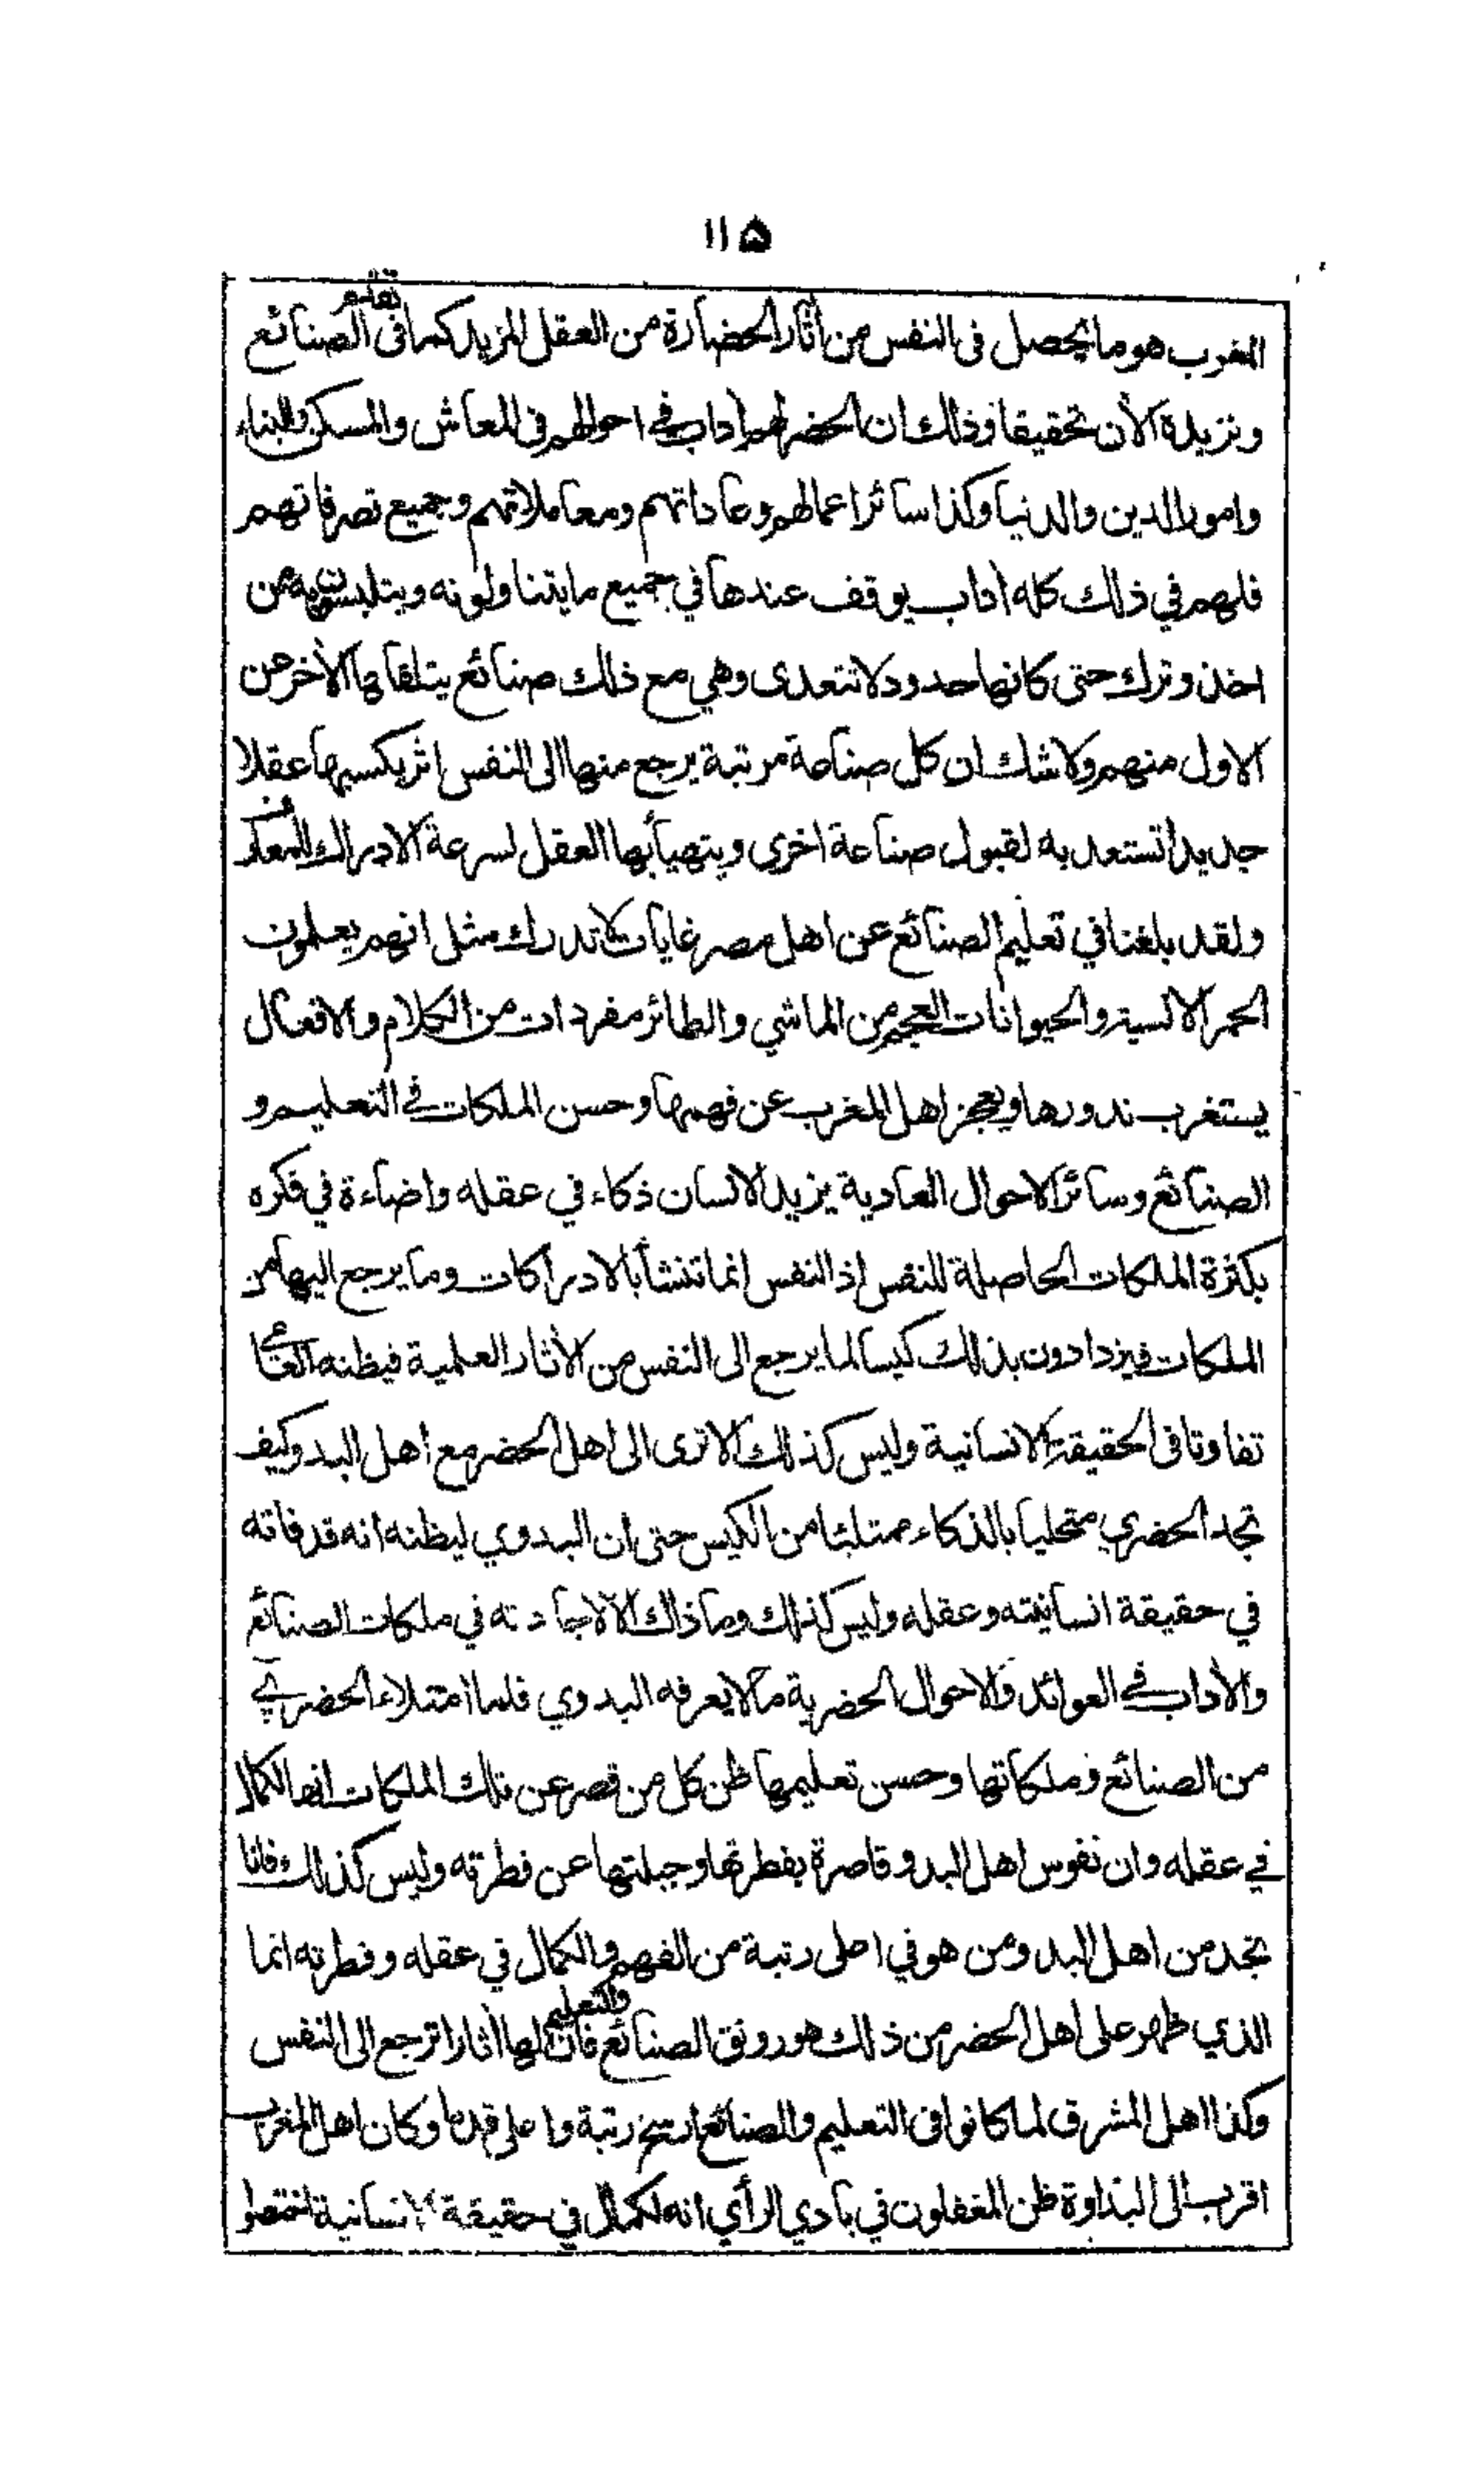 ۱۱۵
المغرب هو ما يحصل فى النفس من أثار الحضارة من العقل المزيد كما فى تعليم الصنائع
ونزيده الأن تحقيقا وذلك ان الحضر لهم اداب في احوالهم فى المعاش والمسكن والبناء
وامور الدين والدنيا وكذا سائر اعمالهم وعاداتهم ومعاملاتهم وجميع تصرفاتهم
فلهم في ذلك كله اداب يوقف عندها في جميع مايتناولونه ويتلبسون به من
اخذ وترك حتى كانها حدود لا تتعدى وهي مع ذلك صنائع يتلقاها الأخر من
الاول منهم ولا شك ان كل صناعة مرتبة يرجع منها الى النفس اثر يكسبها عقلا
جديدا تستعد به لقبول صناعة اخرى ويتهيأ بها العقل لسرعة الادراك للمعارف
ولقد بلغنا في تعليم الصنائع عن اهل مصر غايات لا تدرك مثل انهم يعلمون
الحمر الانسية والحيوانات العجم من الماشي والطائر مفردات من الكلام والافعال
يستغرب ندورها ويعجز اهل المغرب عن فهمها وحسن الملكات في التعليم و
الصنائع وسائر الاحوال العادية يزيد الانسان ذكاء في عقله واضاءة في فكره
بكثرة الملكات الحاصلة للنفس اذ النفس انما تنشأ بالادراكات وما يرجع اليها من
الملكات فيزدادون بذلك كيسا لما يرجع الى النفس من الأثار العلمية فيظنه العامي
تفاوتا فى الحقيقة الانسانية وليس كذلك الا ترى الى اهل الحضر مع اهل البدو كيف
تجد الحضري متحليا بالذكاء ممتلئا من الكيس حتى ان البدوي ليظنه انه قد فاته
في حقيقة انسانيته وعقله وليس كذلك وما ذاك الا لاجادته في ملكات الصنائع
والأداب في العوائد والاحوال الحضرية ما لا يعرفه البدوي فلما امتلاء الحضري
من الصنائع وملكاتها وحسن تعليمها ظن كل من قصر عن تلك الملكات انها لكمال
في عقله وان نفوس اهل البدو قاصرة بفطرتها وجبلتها عن فطرته وليس كذلك فانا
نجد من اهل البدو من هو في اعلى رتبة من الفهم والكمال في عقله وفطرته انما
الذي ظهر على اهل الحضر من ذلك هو رونق الصنائع والتعليم فان لها أثارا ترجع الى النفس
وكذا اهل المشرق لما كانوا فى التعليم والصنائع ارسخ رتبة واعلى قدما وكان اهل المغرب
اقرب الى البداوة ظن المغفلون في بادي الرأي انه لكمال في حقيقة الانسانية اختصوا